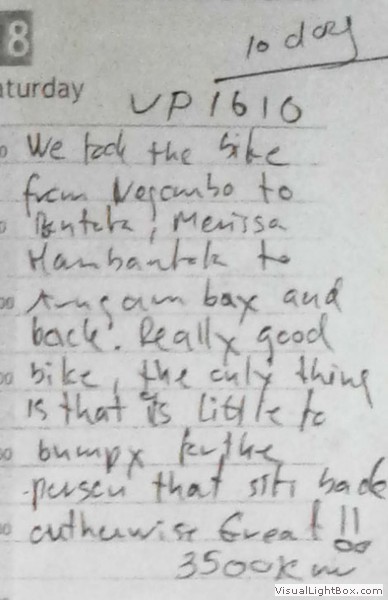 8
10 day
aturday
VP 1610
We took the bike
from Negombo to
Bentota, Merissa
Hambantota to
Arugam bay and
back. Really good
bike, the only thing
is that is little to
bumpy for the
person that sits back
outherwise Great!!
3500 km
VisualLightBox.com